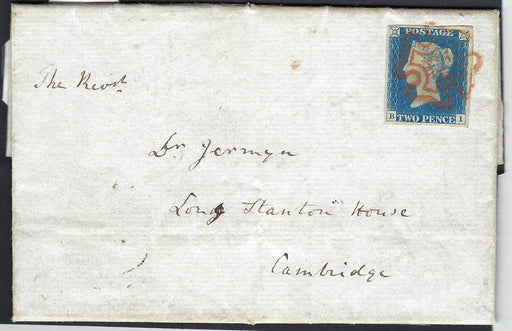 POSTAGE
B I
TWO PENCE
The Revd
Dr Jermyn
Long Stanton House
Cambridge